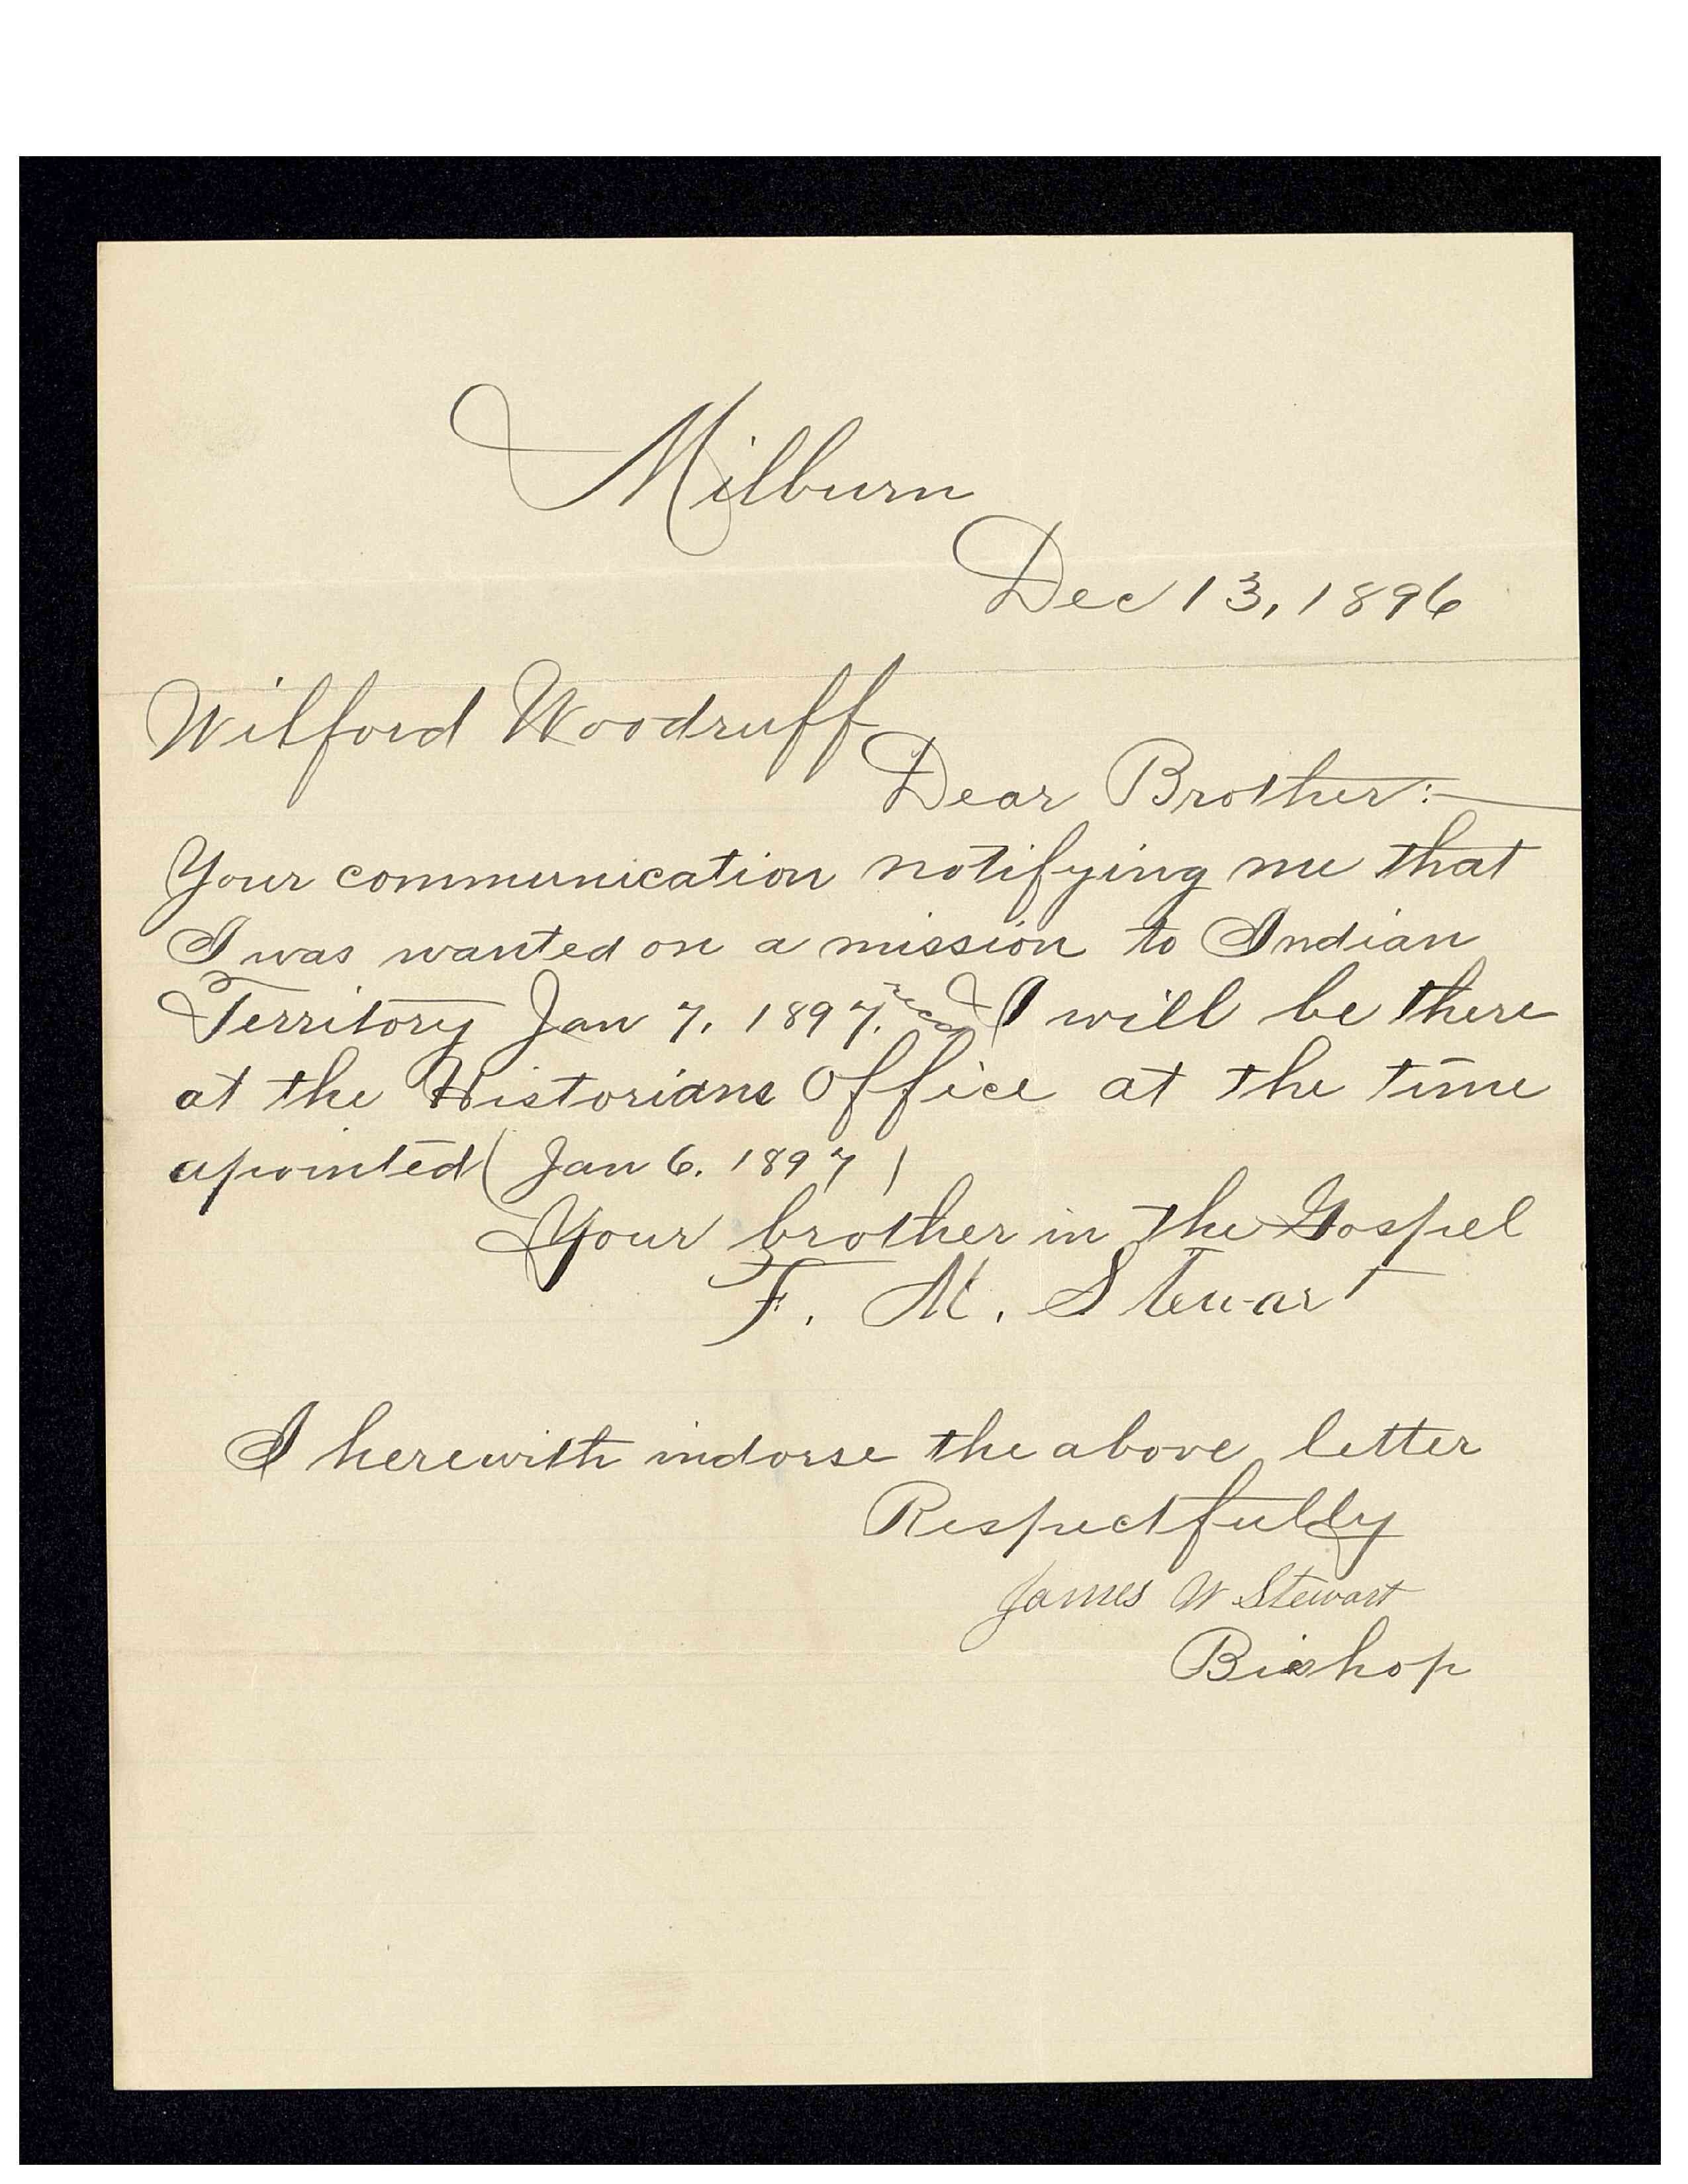 Milburn
Dec 13, 1896
Wilford Woodruff
Dear Brother:
Your communication notifying me that
I was wanted on a mission to Indian
Territory Jan 7, 1897. recd I will be there
at the Historians Office at the time
apointed (Jan 6. 1897)
Your brother in the Gospel
F. M. Stewart
I herewith indorse the above letter
Respectfully
James W Stewart
Bishop